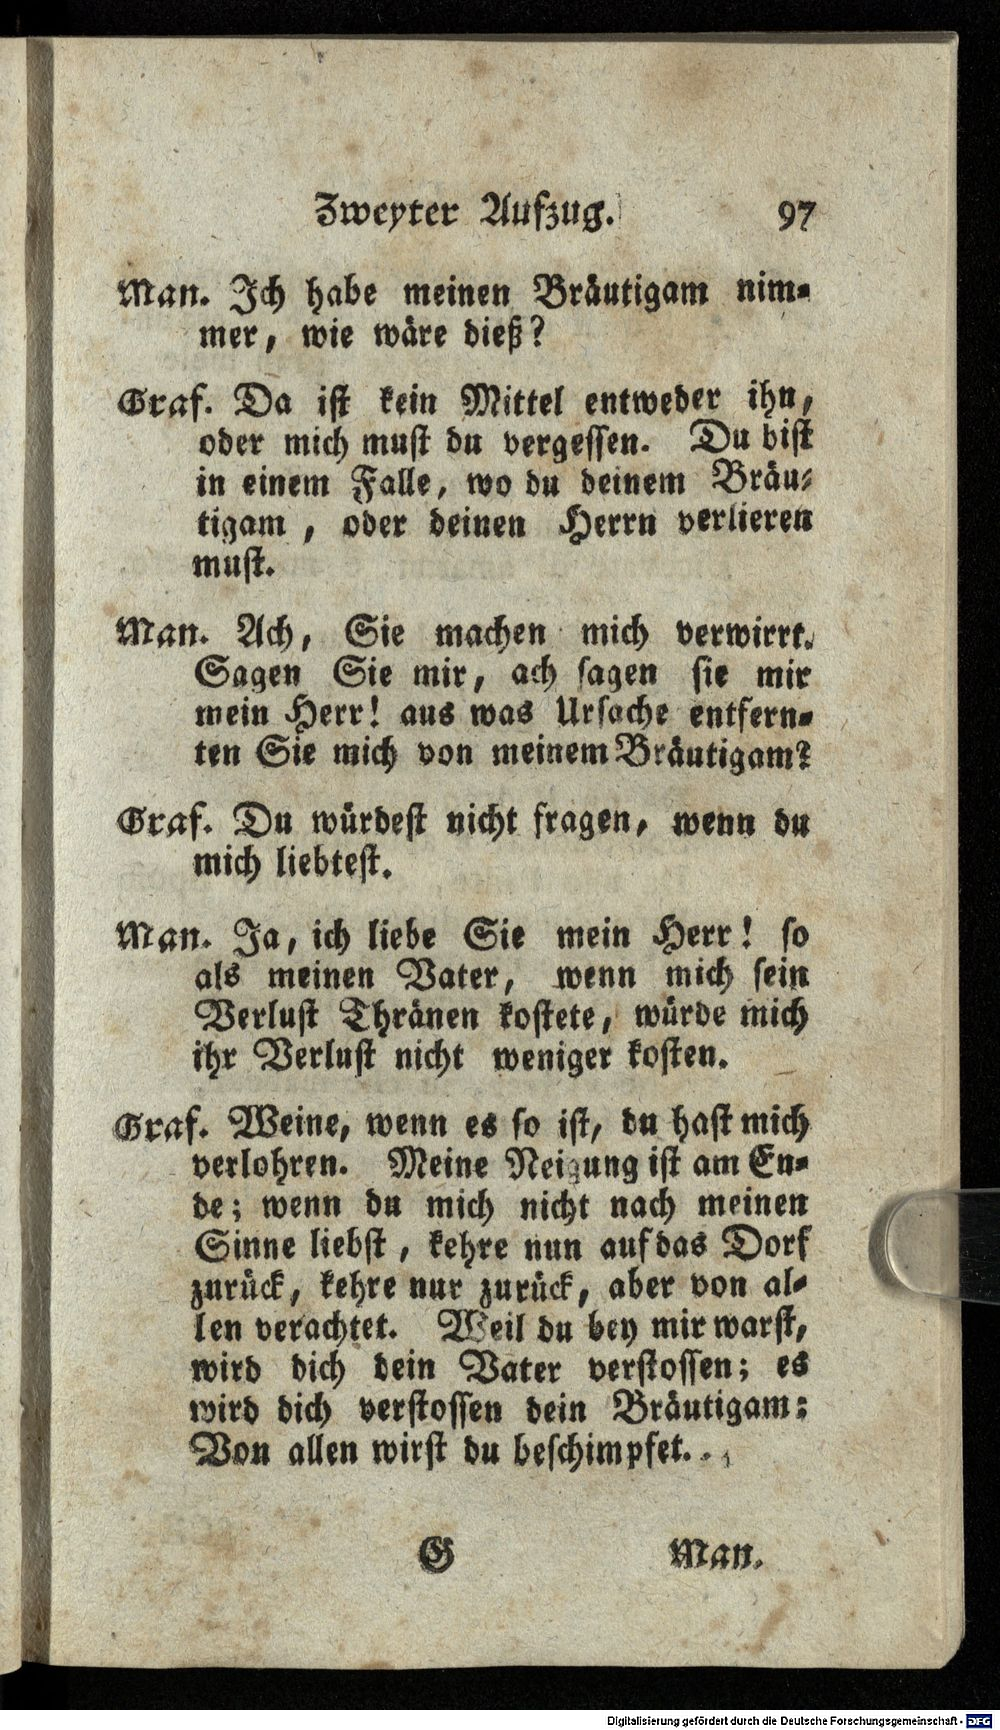 Zweyter Aufzug. 97
Man. Ich habe meinen Bräutigam nim-
mer, wie wäre dieß?
Graf. Da ist kein Mittel entweder ihn,
oder mich must du vergessen. Du bist
in einem Falle, wo du deinem Bräu-
tigam, oder deinen Herrn verlieren
must.
Man. Ach, Sie machen mich verwirrt.
Sagen Sie mir, ach sagen sie mir
mein Herr! aus was Ursache entfern-
ten Sie mich von meinem Bräutigam?
Graf. Du würdest nicht fragen, wenn du
mich liebtest.
Man. Ja, ich liebe Sie mein Herr! so
als meinen Vater, wenn mich sein
Verlust Thränen kostete, würde mich
ihr Verlust nicht weniger kosten.
Graf. Weine, wenn es so ist, du hast mich
verlohren. Meine Neigung ist am En-
de; wenn du mich nicht nach meinen
Sinne liebst, kehre nun auf das Dorf
zurück, kehre nur zurück, aber von al-
len verachtet. Weil du bey mir warst,
wird dich dein Vater verstossen; es
wird dich verstossen dein Bräutigam:
Von allen wirst du beschimpfet..,
G Man.
Digitalisierung gefördert durch die Deutsche Forschungsgemeinschaft - DFG